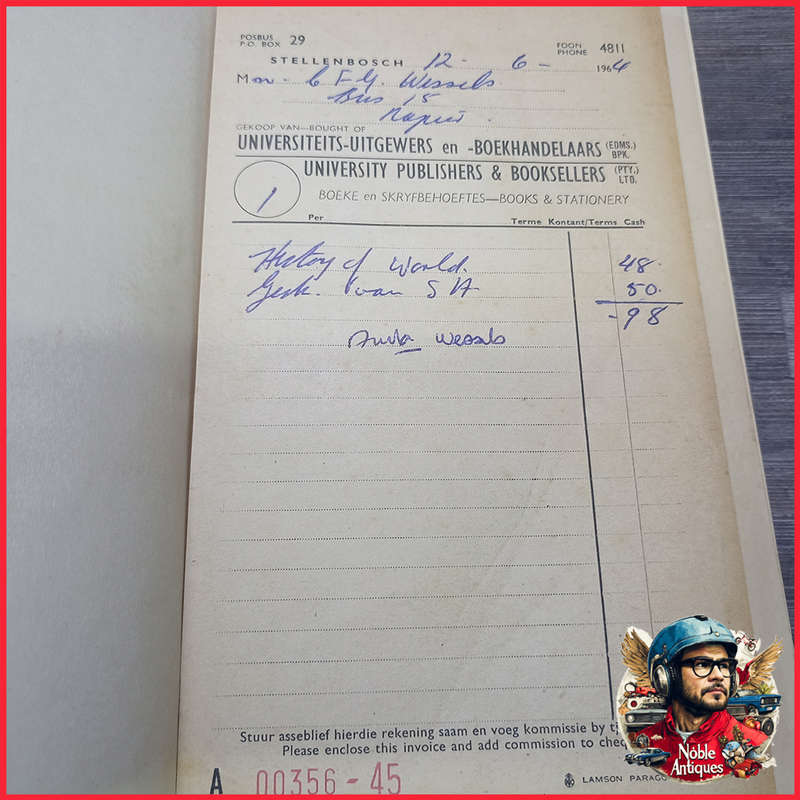 POSBUS
P.O. BOX 29
FOON
PHONE 4811
STELLENBOSCH 12 - 6 - 1964
Mnr. C F G. Wessels
Bus 15
GEKOOP VAN—BOUGHT OF
UNIVERSITEITS-UITGEWERS en -BOEKHANDELAARS (EDMS.) BPK.
UNIVERSITY PUBLISHERS & BOOKSELLERS (PTY.) LTD.
1
BOEKE en SKRYFBEHOEFTES—BOOKS & STATIONERY
Per
Terme Kontant/Terms Cash
History of World. 48.
Gesk. van S A 50.
-98
Wessels
Stuur asseblief hierdie rekening saam en voeg kommissie by
Please enclose this invoice and add commission to
A 00356-45
LAMSON
Noble
Antiques